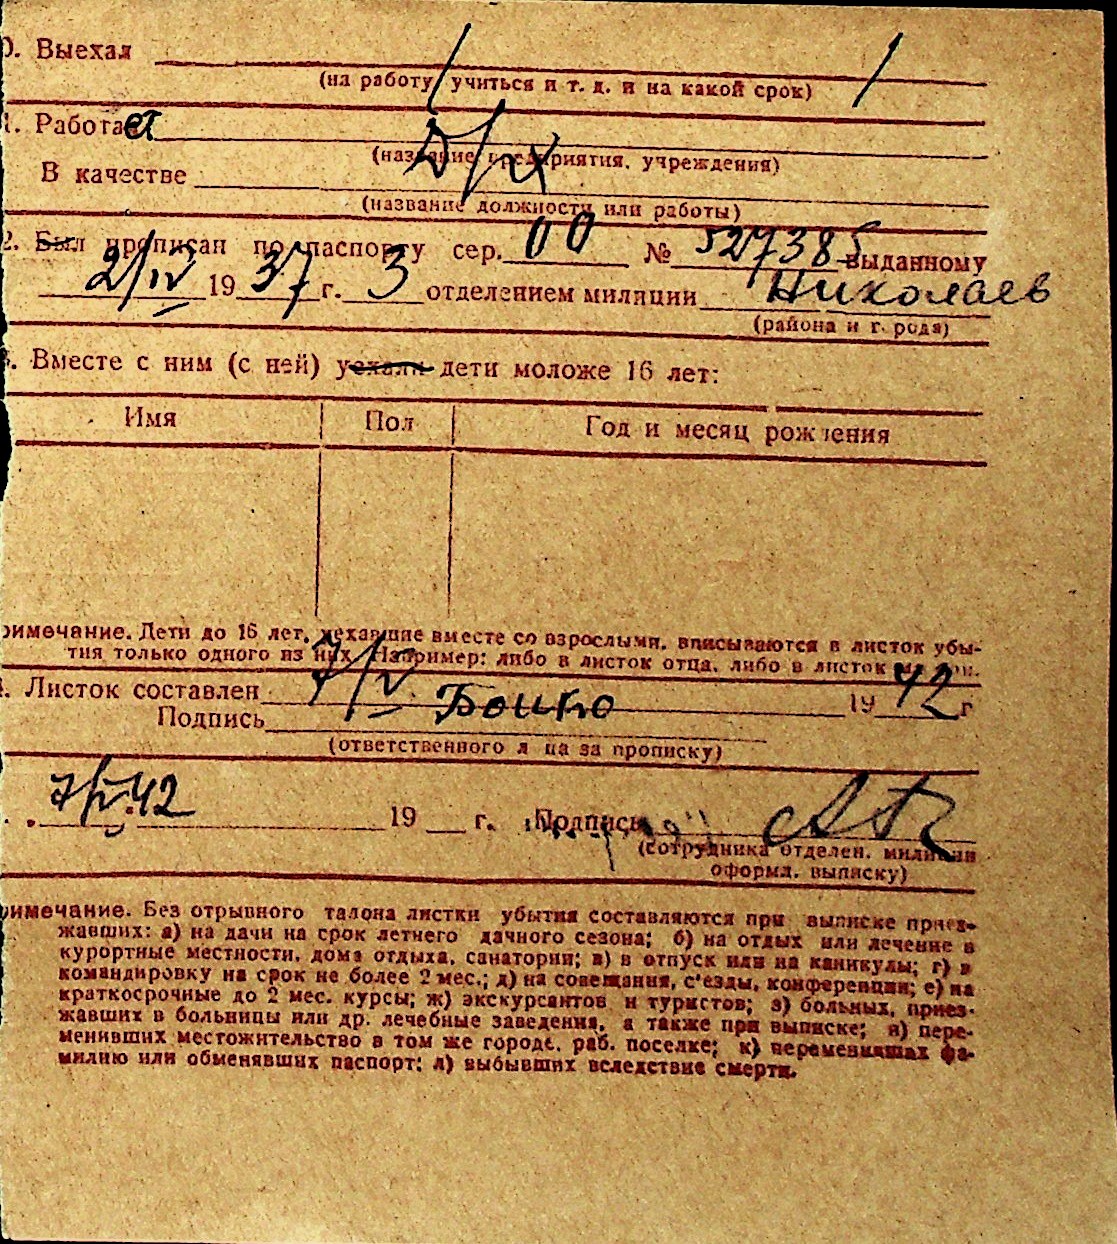 0. Выехал
(на работу, учиться и т. д. и на какой срок)
1. Работает
Д/х
(название предприятия, учреждения)
В качестве
(название должности или работы)
2. Был прописан по паспорту сер. 00 № 527385 выданному
2/IV 1937 г. 3 отделением милиции Николаев
(района и г. рода)
3. Вместе с ним (с ней) уехали дети моложе 16 лет:
Имя Пол Год и месяц рождения
римечание. Дети до 16 лет, уехавшие вместе со взрослыми, вписываются в листок убы-
тия только одного из них. Например: либо в листок отца, либо в листок
4. Листок составлен 7/V 1942 г
Подпись Бойко
(ответственного лица за прописку)
7/V 42 19 г. Подпись
(сотрудника отделен. милиции
оформл. выписку)
римечание. Без отрывного талона листки убытия составляются при выписке приез-
жавших: а) на дачи на срок летнего дачного сезона; б) на отдых или лечение в
курортные местности, дома отдыха, санатории; в) в отпуск или на каникулы; г) в
командировку на срок не более 2 мес.; д) на совещания, с'езды, конференции; е) на
краткосрочные до 2 мес. курсы; ж) экскурсантов и туристов; з) больных, приез-
жавших в больницы или др. лечебные заведения, а также при выписке; и) пере-
менивших местожительство в том же городе, раб. поселке; к) переменивших фа-
милию или обменявших паспорт; л) выбывших вследствие смерти.